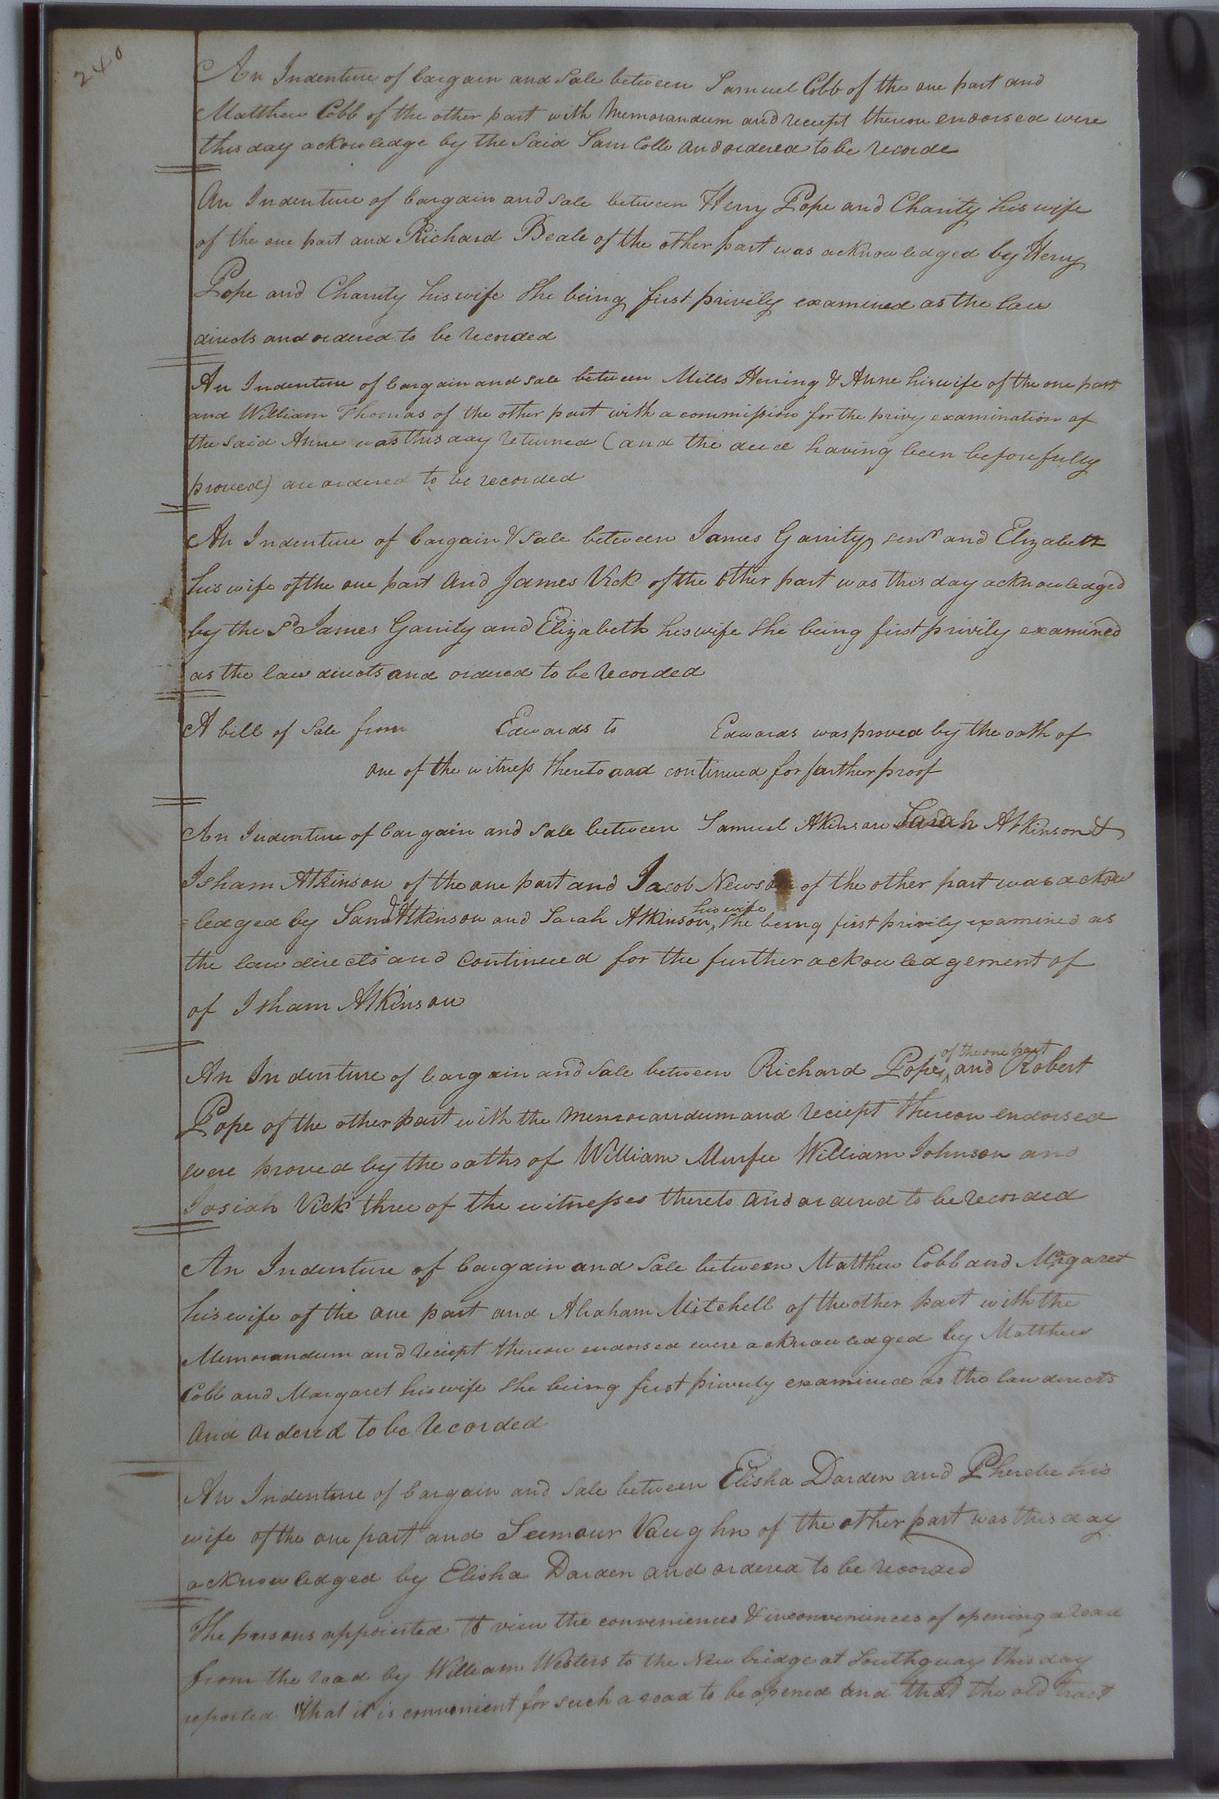 240
An Indenture of bargain and Sale between Samuel Cobb of the one part and
Matthew Cobb of the other part with Memorandum and reciept thereon endorsed were
this day acknowledge by the Said Sam Cobb and ordered to be recorde
An Indenture of bargain and sale between Henry Pope and Charity his wife
of the one part and Richard Beale of the other part was acknowledged by Henry
Pope and Charity his wife She being first privily examined as the law
directs and ordered to be recorded
An Indenture of bargain and sale between Mills Herring & Anne his wife of the one part
and William Thomas of the other part with a commission for the privy examination of
the said Anne was this day returned (and the deed having been before fully
proved) are ordered to be recorded
An Indenture of bargain & sale between James Garrity senr and Elizabeth
his wife of the one part and James Vick of the other part was this day acknowledged
by the sd James Garrity and Elizabeth his wife She being first privily examined
as the law directs and ordered to be recorded
A bill of Sale from Edwards to Edwards was proved by the oath of
one of the witness thereto and continued for further proof
An Indenture of bargain and sale between Samuel Atkinson Sarah Atkinson &
Isham Atkinson of the one part and Jacob Newsom of the other part was acknow
=ledged by Saml Atkinson and Sarah Atkinson his wife She being first privily examined as
the law directs and continued for the further acknowledgement of
of Isham Atkinson
An Indenture of bargain and sale between Richard Pope of the one part and Robert
Pope of the other part with the memorandum and reciept thereon endorsed
were proved by the oaths of William Murfee William Johnson and
Josiah Vick three of the witnesses thereto and ordered to be recorded
An Indenture of bargain and Sale between Matthew Cobb and Margaret
his wife of the one part and Abraham Mitchell of the other part with the
Memorandum and reciept thereon endorsed were acknowledged by Matthew
Cobb and Margaret his wife She being first privily examined as the law directs
and ordered to be recorded
An Indenture of bargain and Sale between Elisha Darden and Pherebe his
wife of the one part and Seemour Vaughn of the other part was this day
acknowledged by Elisha Darden and ordered to be recorded
The persons appointed to view the conveniences & inconveniences of opening a road
from the road by William Westers to the New bridge at Southquay this day
reported "that it is convenient for such a road to be opened and that the old tract